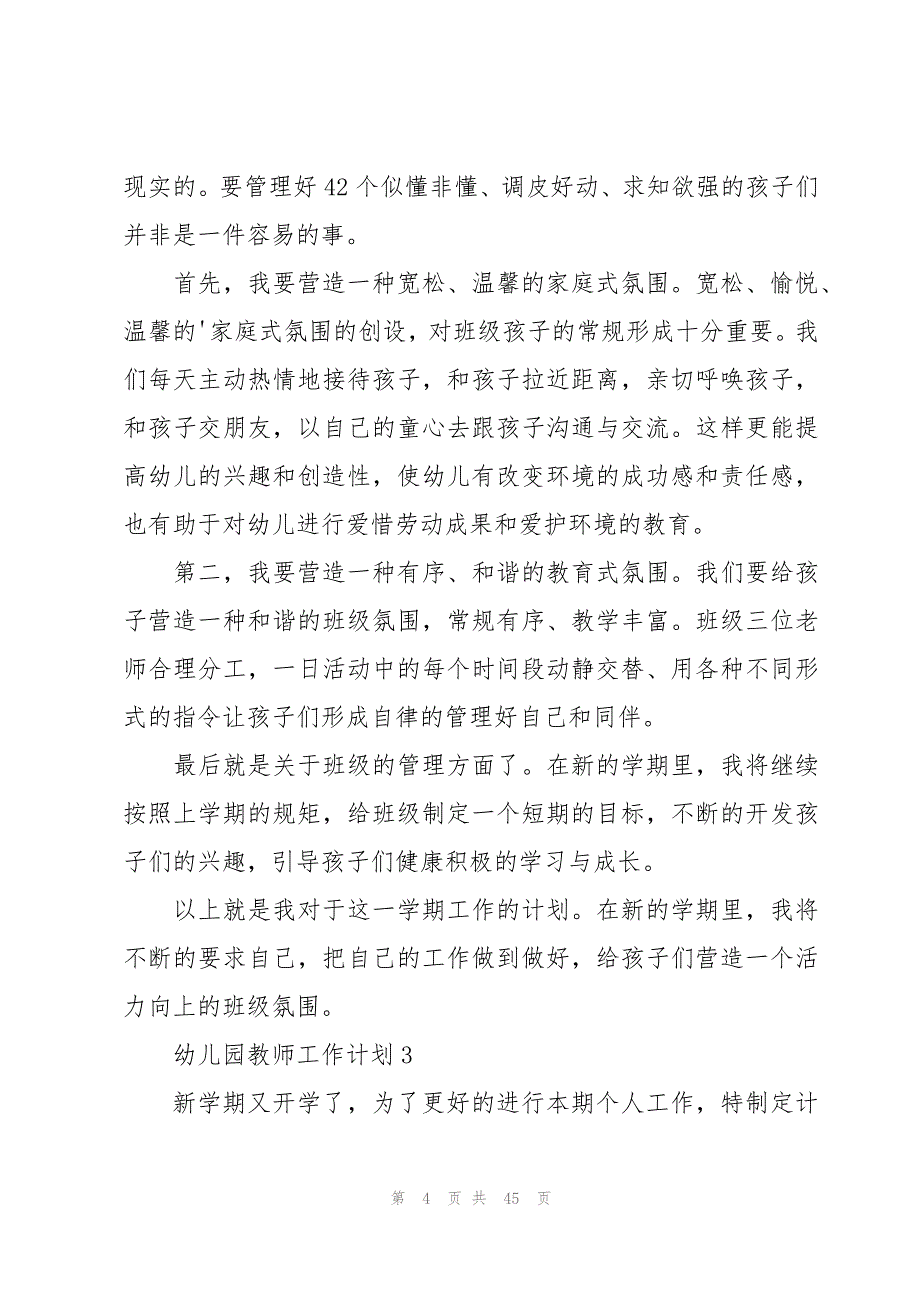 现实的。要管理好42个似懂非懂、调皮好动、求知欲强的孩子们
并非是一件容易的事。
首先，我要营造一种宽松、温馨的家庭式氛围。宽松、愉悦、
温馨的'家庭式氛围的创设，对班级孩子的常规形成十分重要。我
们每天主动热情地接待孩子，和孩子拉近距离，亲切呼唤孩子，
和孩子交朋友，以自己的童心去跟孩子沟通与交流。这样更能提
高幼儿的兴趣和创造性，使幼儿有改变环境的成功感和责任感，
也有助于对幼儿进行爱惜劳动成果和爱护环境的教育。
第二，我要营造一种有序、和谐的教育式氛围。我们要给孩
子营造一种和谐的班级氛围，常规有序、教学丰富。班级三位老
师合理分工，一日活动中的每个时间段动静交替、用各种不同形
式的指令让孩子们形成自律的管理好自己和同伴。
最后就是关于班级的管理方面了。在新的学期里，我将继续
按照上学期的规矩，给班级制定一个短期的目标，不断的开发孩
子们的兴趣，引导孩子们健康积极的学习与成长。
以上就是我对于这一学期工作的计划。在新的学期里，我将
不断的要求自己，把自己的工作做到做好，给孩子们营造一个活
力向上的班级氛围。
幼儿园教师工作计划3
新学期又开学了，为了更好的进行本期个人工作，特制定计
第 4 页 共 45 页